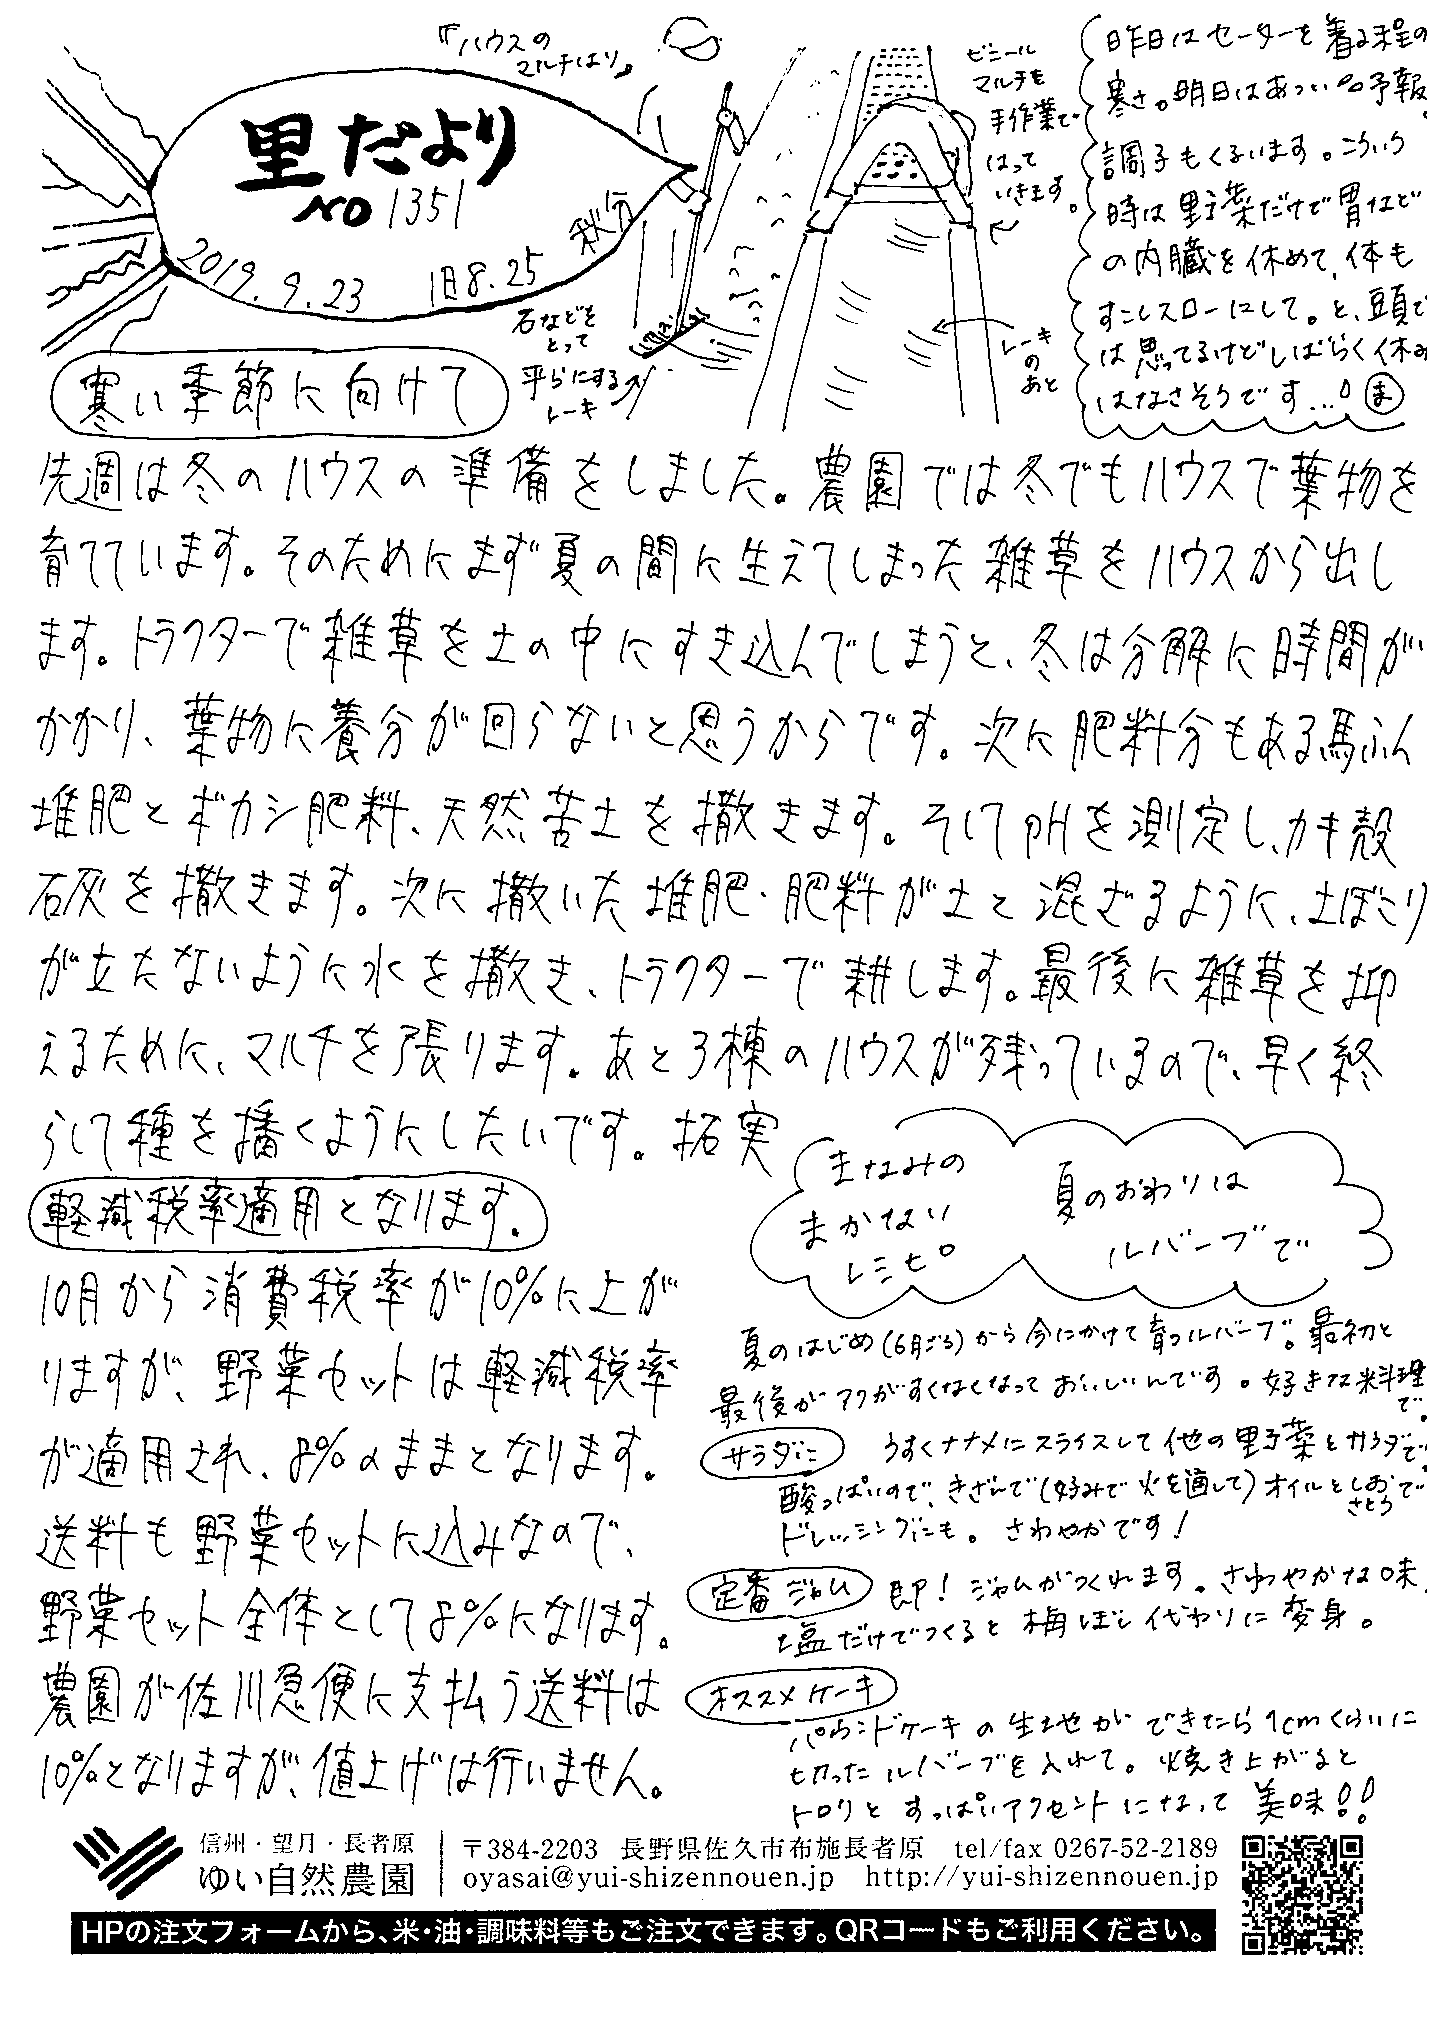 『ハウスの
マルチはり』
里だより
NO 1351
2019.9.23 旧8.25 秋分
石などを
とって
平らにする
レーキ
ビニール
マルチを
手作業で
はって
いきます。
レーキ
の
あと
昨日はセーターを着る程の
寒さ。明日はあつい予報。
調子もくるいます。こういう
時は野菜だけで胃など
の内臓を休めて、体も
すこしスローにして。と、頭で
は思ってるけどしばらく休み
はなさそうです…。ま
寒い季節に向けて
先週は冬のハウスの準備をしました。農園では冬でもハウスで葉物を
育てています。そのためにまず夏の間に生えてしまった雑草をハウスから出し
ます。トラクターで雑草を土の中にすき込んでしまうと、冬は分解に時間が
かかり、葉物に養分が回らないと思うからです。次に肥料分もある馬ふん
堆肥とボカシ肥料、天然苦土を撒きます。そしてpHを測定し、カキ殻
石灰を撒きます。次に撒いた堆肥・肥料が土と混ざるように、土ぼこり
が立たないように水を撒き、トラクターで耕します。最後に雑草を抑
えるために、マルチを張ります。あと3棟のハウスが残っているので、早く終
らして種を播くようにしたいです。拓実
軽減税率適用となります。
10月から消費税率が10%に上が
りますが、野菜セットは軽減税率
が適用され、8%のままとなります。
送料も野菜セットに込みなので、
野菜セット全体として8%になります。
農園が佐川急便に支払う送料は
10%となりますが、値上げは行いません。
まなみの
まかない
レシピ
夏のおわりは
ルバーブで
夏のはじめ(6月ごろ)から今にかけて育つルバーブ。最初と
最後がアクがすくなくなっておいしいんです。好きな料理
で。
サラダに うすくナナメにスライスして他の野菜とサラダで。
酸っぱいので、きざんで(好みで火を通して)オイルとしおさとうで
ドレッシングにも。さわやかです!
定番ジャム 即!ジャムがつくれます。さわやかな味、
塩だけでつくると梅ぼし代わりに変身。
オススメケーキ
パウンドケーキの生地ができたら1cmくらいに
切ったルバーブを入れて。焼き上がると
トロリとすっぱいアクセントになって美味!!
信州・望月・長者原
ゆい自然農園
〒384-2203 長野県佐久市布施長者原 tel/fax 0267-52-2189
oyasai@yui-shizennouen.jp http://yui-shizennouen.jp
HPの注文フォームから、米・油・調味料等もご注文できます。QRコードもご利用ください。